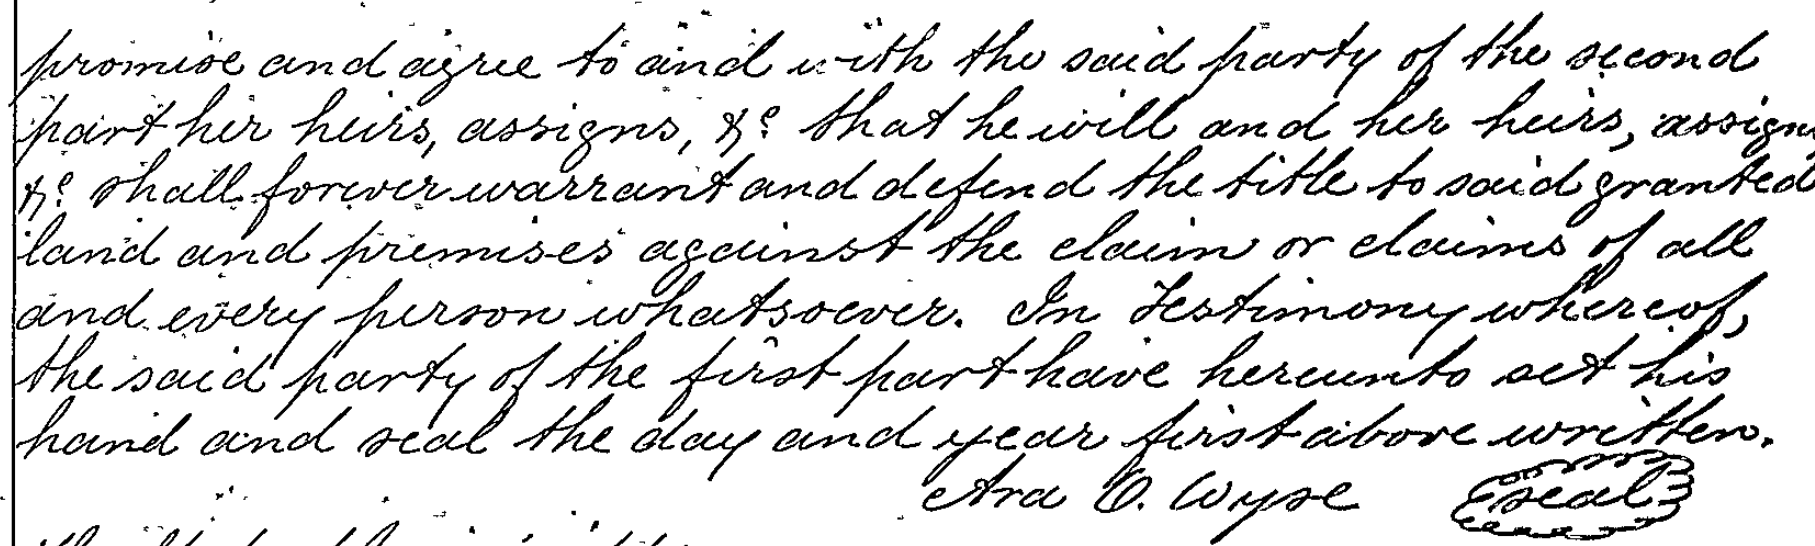 promise and agree to and with the said party of the second
part her heirs, assigns, &c. that he will and her heirs, assigns
&c. shall forever warrant and defend the title to said granted
land and premises against the claim or claims of all
and every person whatsoever. In Testimony whereof,
the said party of the first part have hereunto set his
hand and seal the day and year first above written.
Ara O. Wyse seal